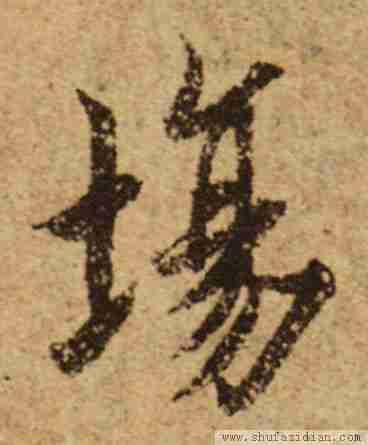 塲
www.shufazidian.com